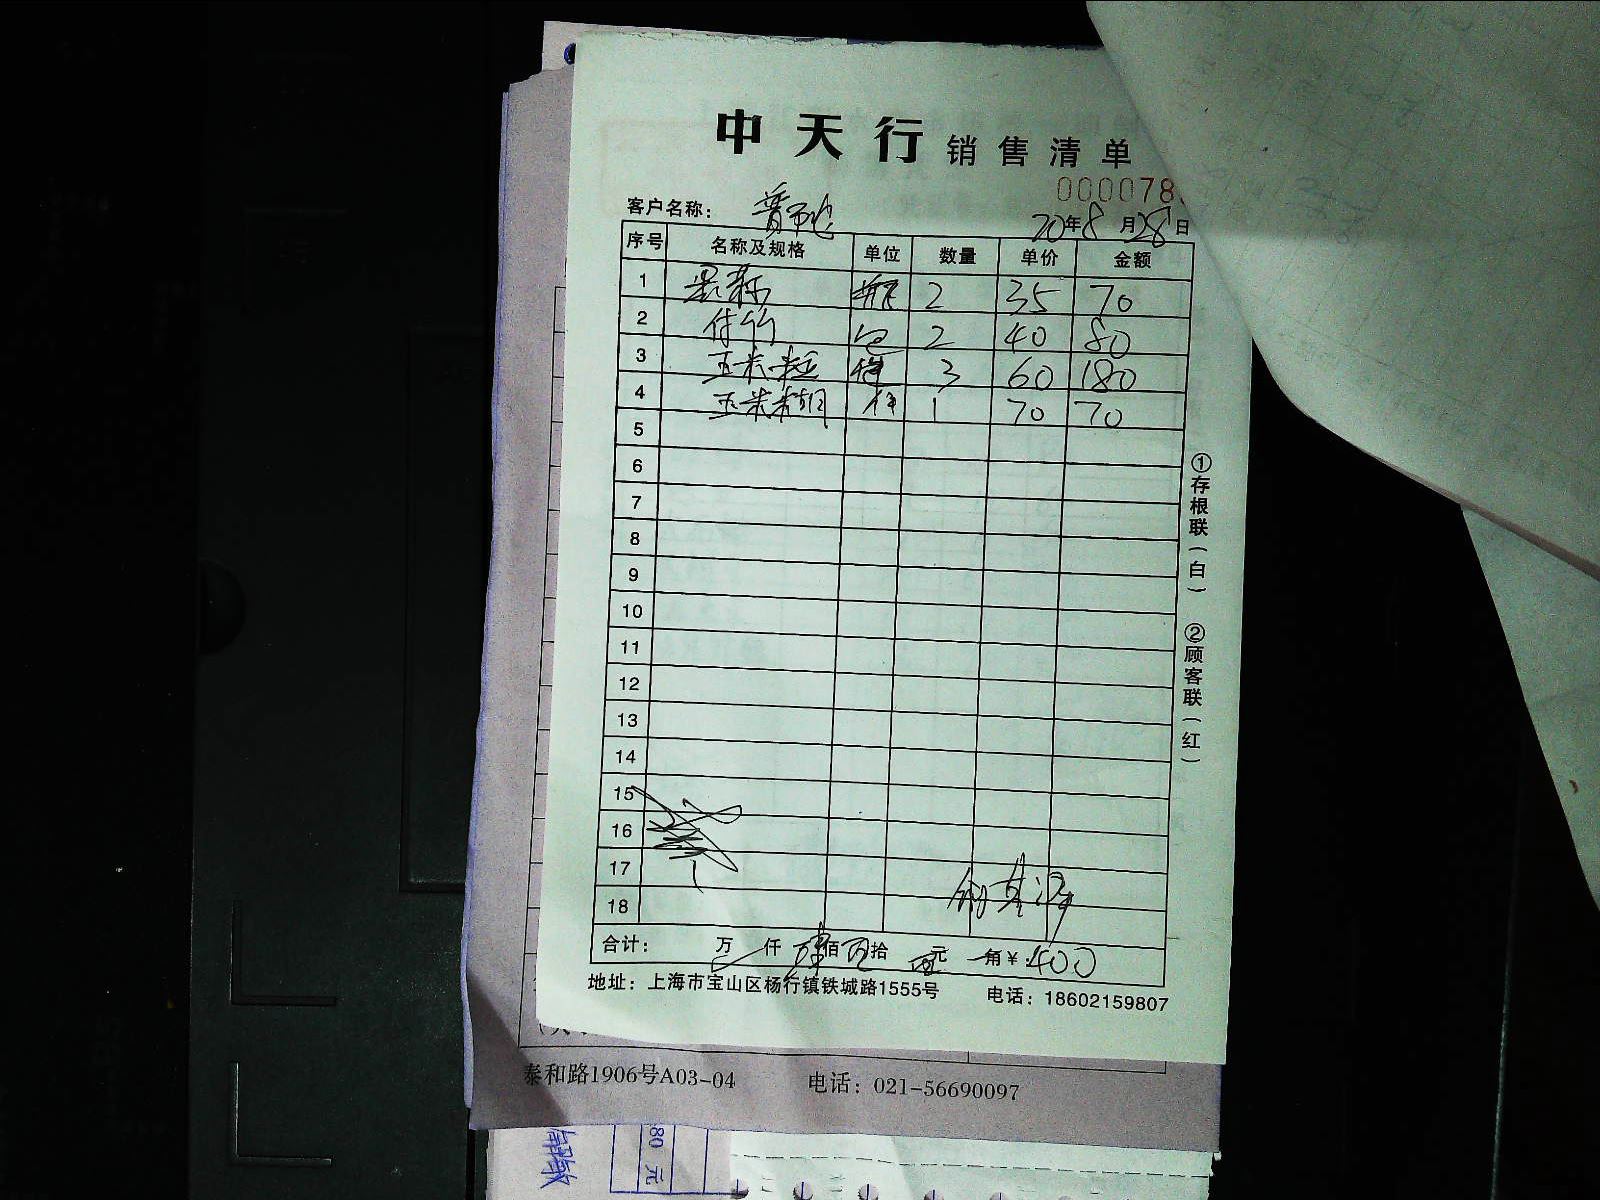 中天行 销售清单
000078
客户名称：
20年8月28日
序号 名称及规格 单位 数量 单价 金额
1 瓶 2 35 70
2 付竹 包 2 40 80
3 玉米粒 件 3 60 180
4 玉米糊 件 1 70 70
5
6
7
8
9
10
11
12
13
14
15
16
17
18
合计： 万 仟 肆佰 拾 元 角￥：400
地址：上海市宝山区杨行镇铁城路1555号 电话：18602159807
①存根联（白） ②顾客联（红）
泰和路1906号A03-04 电话：021-56690097
80元